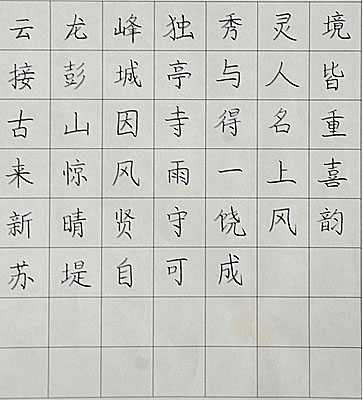 云龙峰独秀灵境
接彭城亭与人皆
古山因寺得名重
来惊风雨一上喜
新晴贤守饶风韵
苏堤自可成